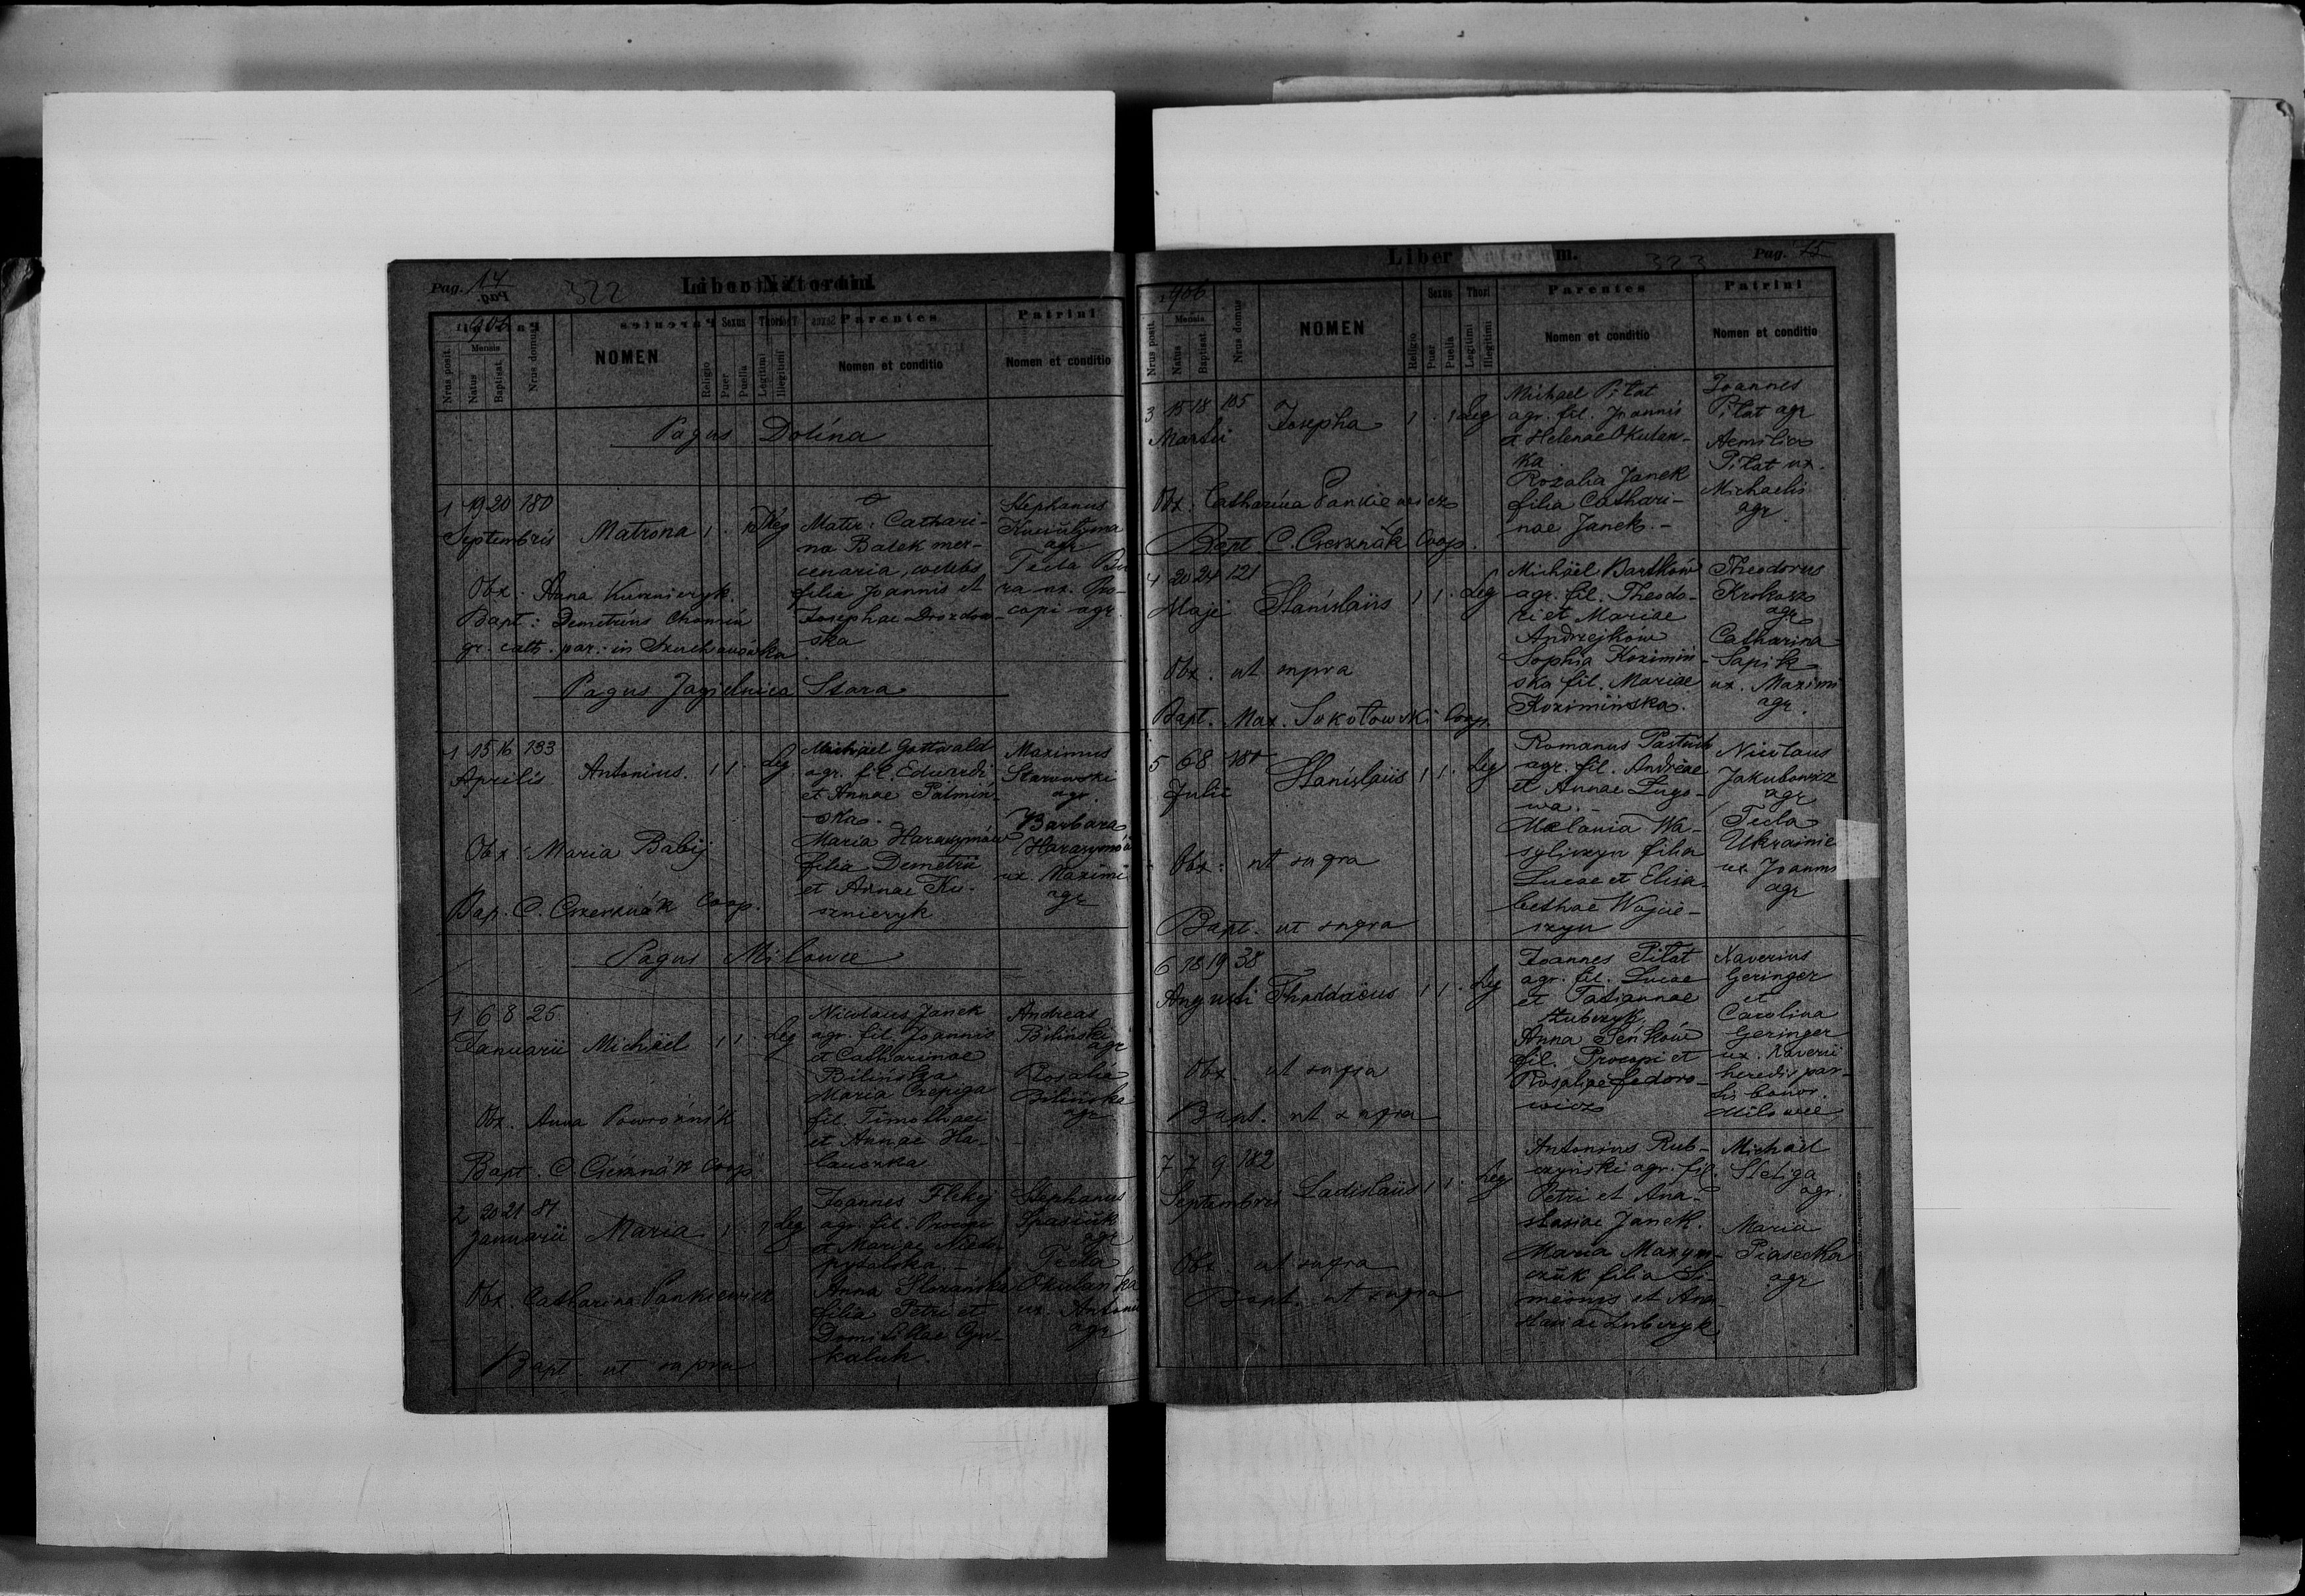 Pag. 14
322
Liber Natorum.
1906
Nrus posit.
Mensis
Natus
Baptisat.
Nrus domus
NOMEN
Religio
Sexus
Puer
Puella
Thori
Legitimi
Illegitimi
Parentes
Nomen et conditio
Patrini
Nomen et conditio
Pagus Dolina
1 19 20 180
Septembris
Matrona
Mater: Cathari-
na Batek mer-
cenaria, coelebs
filia Joannis et
Josephae Drozdow-
ska
Stephanus
agr
Tecla
ra ux. Pro-
copi agr.
Obx. Anna Kusznieryk.
Bapt: Demetrius
gr. cath. par. in
Pagus Jagielnica Stara
1 15 16 133
Aprilis
Antonius. 1 1 Leg.
Michäel Gottwald
agr. fil. Eduardi
et Annae Palmiń-
ska.
Maria Harasymów
filia Demetrii
et Annae Ku-
sznieryk
Maximus
Starowski
agr.
Barbara
Harasymów
ux. Maximi
agr
Obx: Maria Babij
Bap. C. Czerznák Coop.
Pagus Milowce
1 6 8 25
Januarii
Michäel 1 1 Leg
Nicolaus Janek
agr. fil. Joannis
et Catharinae
Bilińska
Maria Czepiga
fil. Timothaei
et Annae Ha-
Andreas
Biliński
agr
Rosalia
Bilińska
agr
Obx. Anna Powróźnik
Bapt. C. Czerznák Coop.
2 20 21 81
Januarii
Maria 1 1 Leg
Joannes
agr. fil. Procopi
et Mariae Niedo-
pytalska.-
Anna
filia Petri et
Domitillae
kaluk.
Stephanus
Spasiuk
agr
Tecla
Okulanka
ux. Antonii
agr
Obx. Catharina Pankiewicz
Bapt ut supra
Liber m.
323
Pag. 15
1906
Nrus posit.
Mensis
Natus
Baptisat.
Nrus domus
NOMEN
Religio
Sexus
Puer
Puella
Thori
Legitimi
Illegitimi
Parentes
Nomen et conditio
Patrini
Nomen et conditio
3 15 18 105
Martii
Josepha 1 1 Leg
Michael Pitat
agr. fil. Joannis
et Helenae Okulan-
ka
Rozalia Janek
filia Cathari-
nae Janek.-
Joannes
Pitat agr
Aemilia
Pitat ux.
Michaelis
agr.
Obx. Catharina Pankiewicz
Bapt C. Czerznák Coop.
4 20 24 121
Maji
Stanislaüs 1 1 Leg
Michäel Bartków
agr. fil. Theodo-
ri et Mariae
Andrzejków
Sophia Kozimiń-
ska fil. Mariae
Koziminska.
Theodorus
Krokosz
agr
Catharina
Sapik
ux. Maximi
agr.
Obx. ut supra
Bapt. Max. Sokołowski Coop.
5 6 8 181
Julii
Stanislaüs 1 1 Leg
Romanus Pastuch
agr. fil. Andreae
et Annae Lugo-
wa.-
Melania Wa-
syliszyn filia
Lucae et Elisa-
bethae Wojcie-
szyn
Nicolaus
Jakubowicz
agr
Tecla
Ukrainiec
ux. Joannis
agr
Obx: ut supra
Bapt. ut supra
6 18 19 38
Augusti
Thaddaeus 1 1 Leg
Joannes Pitat
agr. fil. Lucae
et Tatiannae
Anna Seńków
fil. Procopi et
Rosaliae Fedoro-
wicz
Xaverius
Geringer
et
Carolina
Geringer
ux. Xaverii
heredis par-
tis bonor.
Milowce
Obx. ut supra
Bapt. ut supra
7 7 9 182
Septembris
Ladislaüs 1 1 Leg
Antonius Rub-
czyński agr. fil.
Petri et Ana-
stasiae Janek.
Maria Maxym-
czuk filia Si-
meonis et Ana-
stasiae
Michäel
Steliga
agr.
Maria
Piasecka
agr
Obx. ut supra
Bapt. ut supra